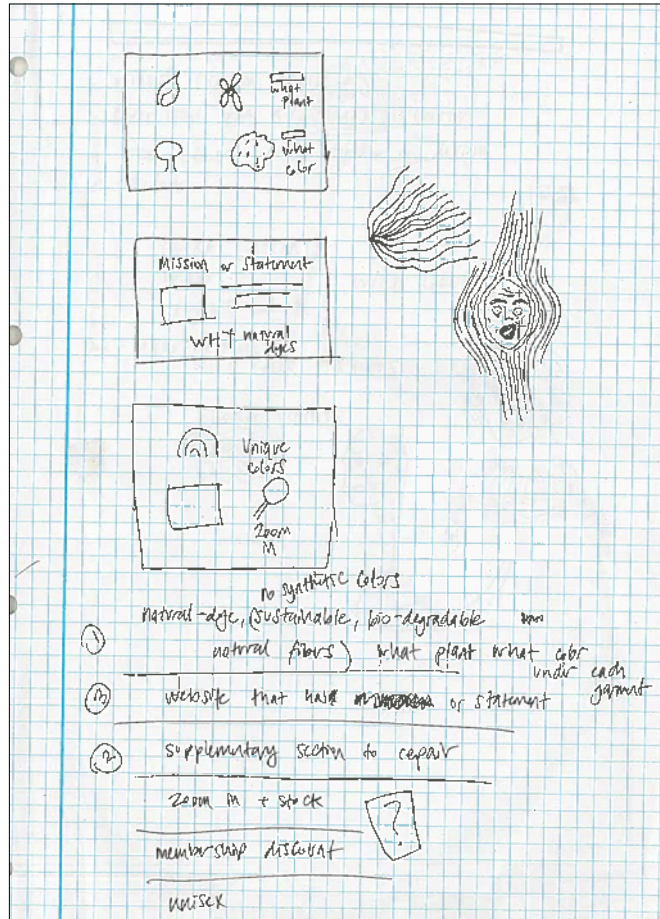 what
plant
what
color
Mission or Statement
WHY natural
dyes
Unique
colors
zoom
in
no synthetic colors
① natural-dye, (sustainable, bio-degradable
natural fibers) what plant what color
under each
garment
③ website that has or statement
② supplementary section to repair
zoom in + stock
?
membership discount
unisex